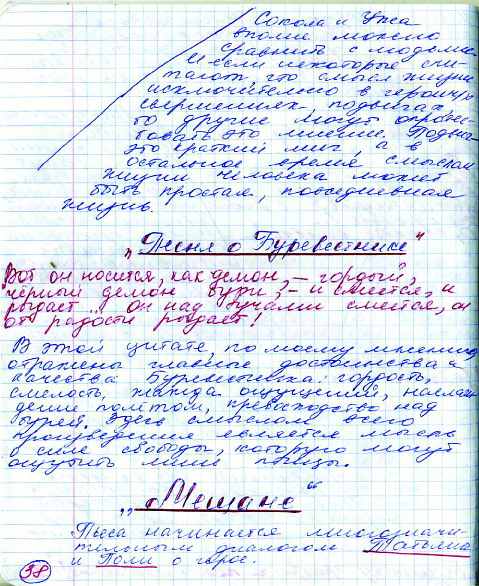 Сокола и Ужа
вполне можно
сравнить с людьми.
И если некоторые счи-
тают, что смысл жизни
исключительно в героичес
свершениях, подвигах,
то другие могут опровес
бовать это мнение. Подвиг
это краткий миг, а в
остальное время смыслом
жизни человека может
быть простая, повседневная
жизнь.
„Песня о Буревестнике"
Вот он носится, как демон, – гордый,
чёрный демон бури, – и смеётся, и
рыдает... Он над тучами смеётся, он
от радости рыдает!
В этой цитате, по моему мнению,
отражены главные достоинства и
качества Буревестника: гордость,
смелость, жажда ощущений, наслаж
дение полётом, превосходство над
бурей. Здесь смыслом всего
произведения является мысль
о силе свободы, которую могут
ощутить лишь птицы.
„Мещане"
Пьеса начинается многозначи-
тельным диалогом Татьяны
и Поли о герое.
98